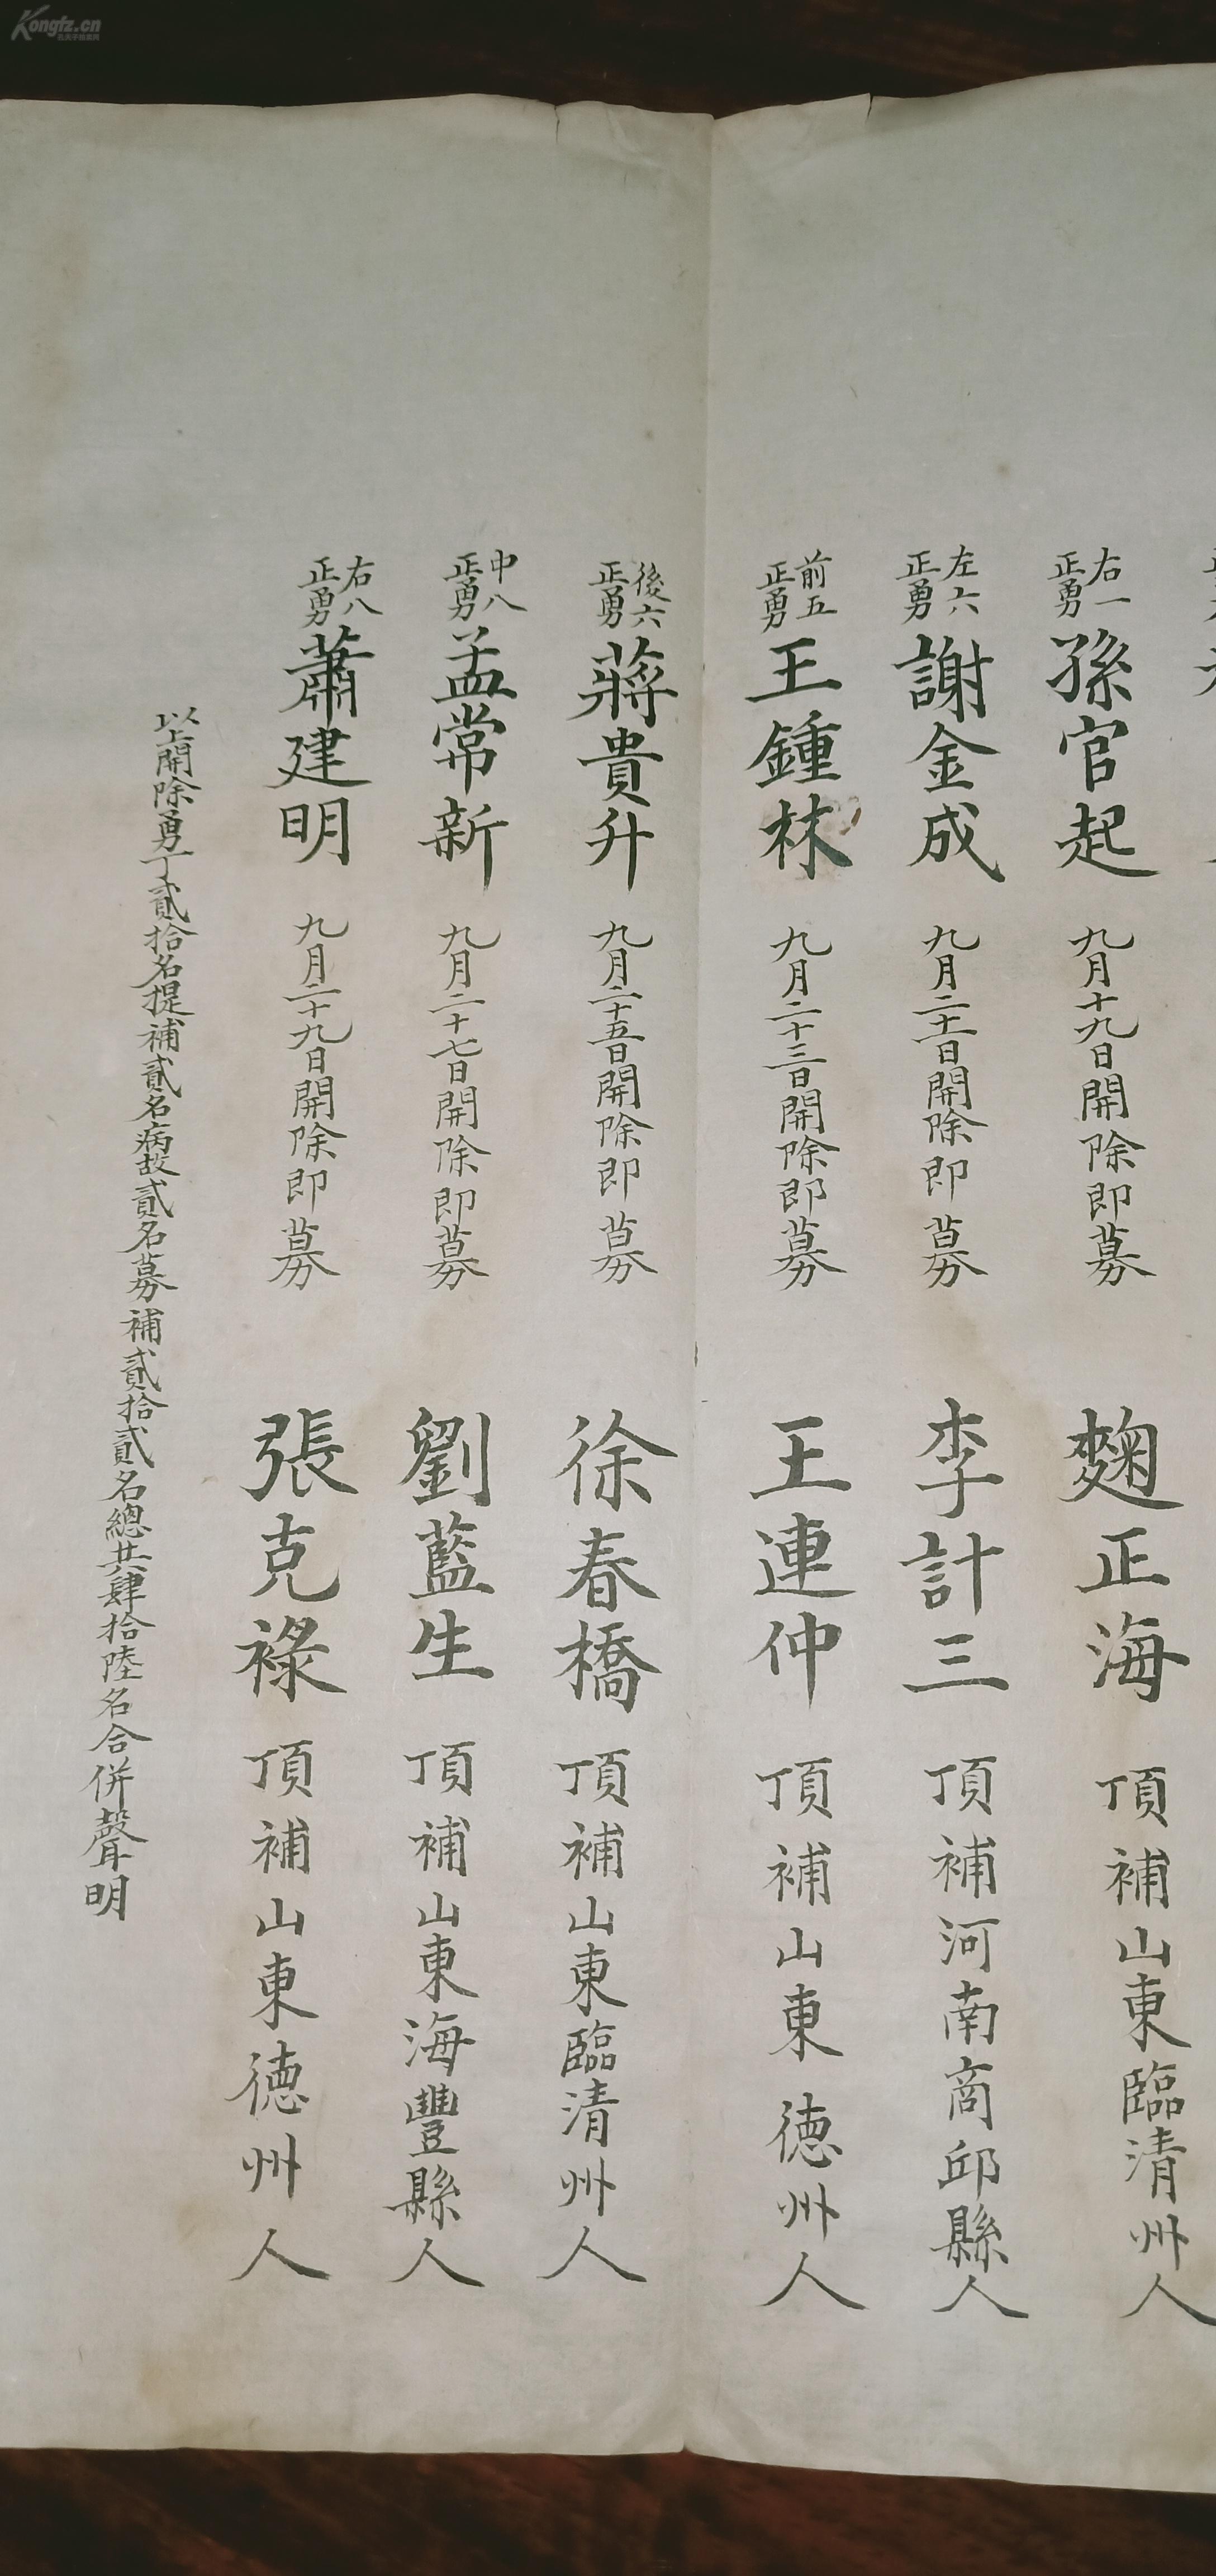 右一正勇孫官起 九月十九日開除即募 麴正海 頂補山東臨清州人
左六正勇謝金成 九月二十一日開除即募 李計三 頂補河南商邱縣人
前五正勇王鍾林 九月二十三日開除即募 王連仲 頂補山東德州人
後六正勇蔣貴升 九月二十五日開除即募 徐春橋 頂補山東臨清州人
中八正勇孟常新 九月二十七日開除即募 劉藍生 頂補山東海豐縣人
右八正勇蕭建明 九月二十九日開除即募 張克祿 頂補山東德州人
以上開除勇丁貳拾名提補貳名病故貳名募補貳拾貳名總共肆拾陸名合併聲明
Kongfz.cn